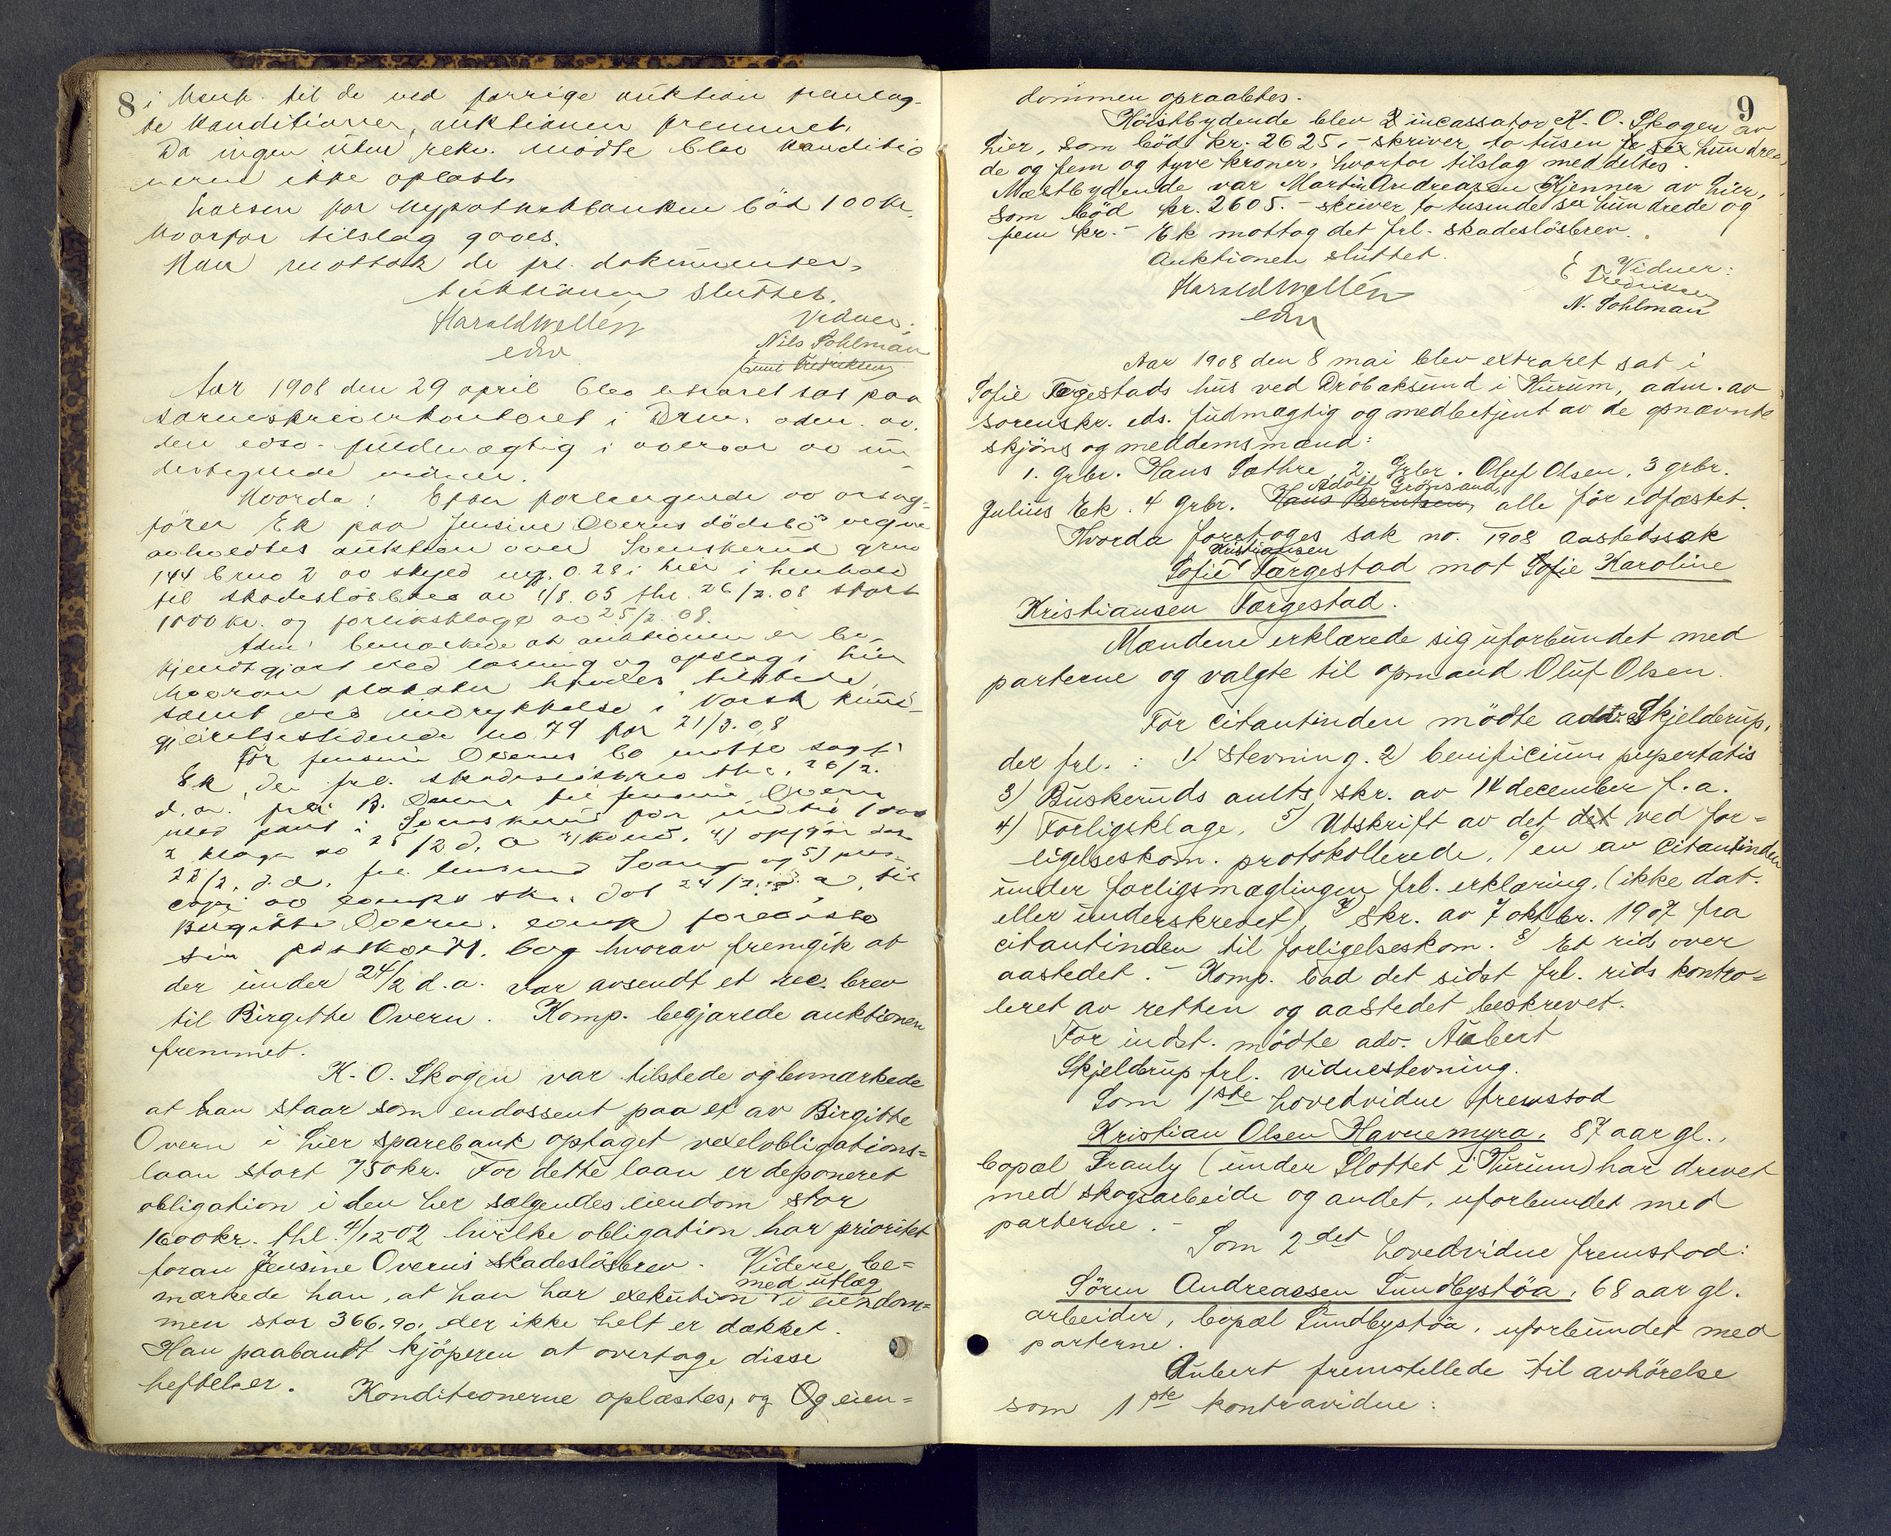 8
i henh. til de ved forrige auktion fremlag-
te konditioner, auktionen fremmet.
Da ingen uten rekv. mødte blev konditio
nerne ikke oplæst.
Larsen for Hypothekbanken bød 100 kr.
hvorfor tilslag gaves.
Han mottok de frl. dokumenter.
Auktionen sluttet.
Harald Wellén
edsv
Vidner:
Nils Pohlman
Emil Fredriksen
Aar 1908 den 29 april blev extraret sat paa
sorenskriverkontoret i Drm. adm. av
den edsv. fuldmægtig i overvær av un-
dertegnede vidner.
Hvorda: Efter forlangende av orsag-
fører Ek paa Jensine Overns dødsbos vegne
avholdtes auktion over Svenskerud grno
144 brno 2 av skyld mrk. 0.28 i Lier i henhold
til skadesløsbrev av 1/8. 05 thl. 26/2. 08 stort
1000 kr. og forliksklage av 25/2. 08.
Adm. bemærkede at auktionen er be-
kjendtgjort ved læsning og opslag i Lier
hvoran plakaten havdes tilstede,
samt ved indrykkelse i Norsk kund-
gjørelsestidende no 79 for 21/3. 08
For Jensine Overns bo møtte sagf.
Ek, der frl. skadesløsbrev thl. 26/2.
d. a. fra B. Overn til Jensine Overn
med pant i Svenskerud for indtil 1000
2 klage av 25/2 d. a. 3) kond. 4) opgjør dat
22/2. d. a. fra lensmd Svang og 5) pro-
copi av comps skr. dat 24/2. d. a. til
Birgitte Overn. comp. foreviste
sin postkvit. bog hvorav fremgik at
der under 24/2 d. a. var avsendt et rec. brev
til Birgitte Overn. Komp. begjærede auktionen
fremmet.
K. O. Skogen var tilstede og bemærkede
at han staar som endossent paa et av Birgitte
Overn i Lier sparebank optaget vexelobligations-
laan stort 750 kr. For dette laan er deponeret
obligation i den her sælgendes eiendom stor
1600 kr. thl. 4/12-02 hvilke obligation har prioritet
foran Jensine Overns skadesløsbrev. Videre be-
mærkede han, at han har exekution med utlæg i eiendom-
men stor 366,90, der ikke helt er dækket.
Han paabandt kjøperen at overtage disse
heftelser.
Konditionerne oplæstes, og Og eien-
9
dommen opraabtes.
Høistbydende blev incassator K. O. Skogen av
Lier, som bød kr. 2625,- skriver to tusen sex hundre-
de og fem og tyve kroner, hvorfor tilslag meddeltes.
Næstbydende var Martin Andreasen Kjenner av Lier,
som bød kr. 2605.- skriver to tusende sex hundrede og
fem kr. - Ek mottog det frl. skadesløsbrev.
Auktionen sluttet.
Harald Wellén
edsv
Vidner:
E Fredriksen
N. Pohlman
Aar 1908 den 8 mai blev extraret sat i
Sofie Færgestads hus ved Drøbaksund i Hurum, adm. av
sorenskr. eds. fudmægtig og medbetjent av de opnævnte
skjøns og meddemsmænd:
1. Grbr. Hans Sæthre, 2. Grbr. Oluf Olsen, 3 grbr.
Julius Ek. 4 Grbr. Hans Berntsen Adolf Grønsand, alle før edfæstet.
Hvorda foretoges sak no. 1908 aastedssak
Sofie Kristiansen Færgestad mot Sofie Karoline
Kristiansen Færgestad.
Mændene erklærede sig uforbundet med
parterne og valgte til opmand Oluf Olsen.
For citantinden mødte adv. Skjelderup,
der frl. : 1. Stevning. 2) benificium pupertatis
3) Buskeruds amts skr. av 14 december f. a.
4) Forligsklage, 5) Utskrift av det det ved for-
ligelseskom. protokollerede, 6) en av citantinden
under forligsmæglingen frl. erklæring, (ikke dat.
eller underskrevet), 7) Skr. av 7 oktbr. 1907 fra
citantinden til forligelseskom. 8) Et rids over
aastedet. - Komp. bad det sidst frl. rids kontro-
leret av retten og aastedet beskrevet.
For indst. mødte adv. Aubert
Skjelderup frl. vidnestevning.
Som 1ste hovedvidne fremstod
Kristian Olsen Havnemyra, 87 aar gl.,
bopæl Trauly (under Slottet i Hurum) har drevet
med skogsarbeide og andet, uforbundet med
parterne. -
Som 2det hovedvidne fremstod:
Søren Andreassen Sundbystøa, 68 aar gl.
arbeider, bopæl Sundbystøa, uforbundet med
parterne.
Aubert fremstillede til avhørelse
som 1ste kontravidne: